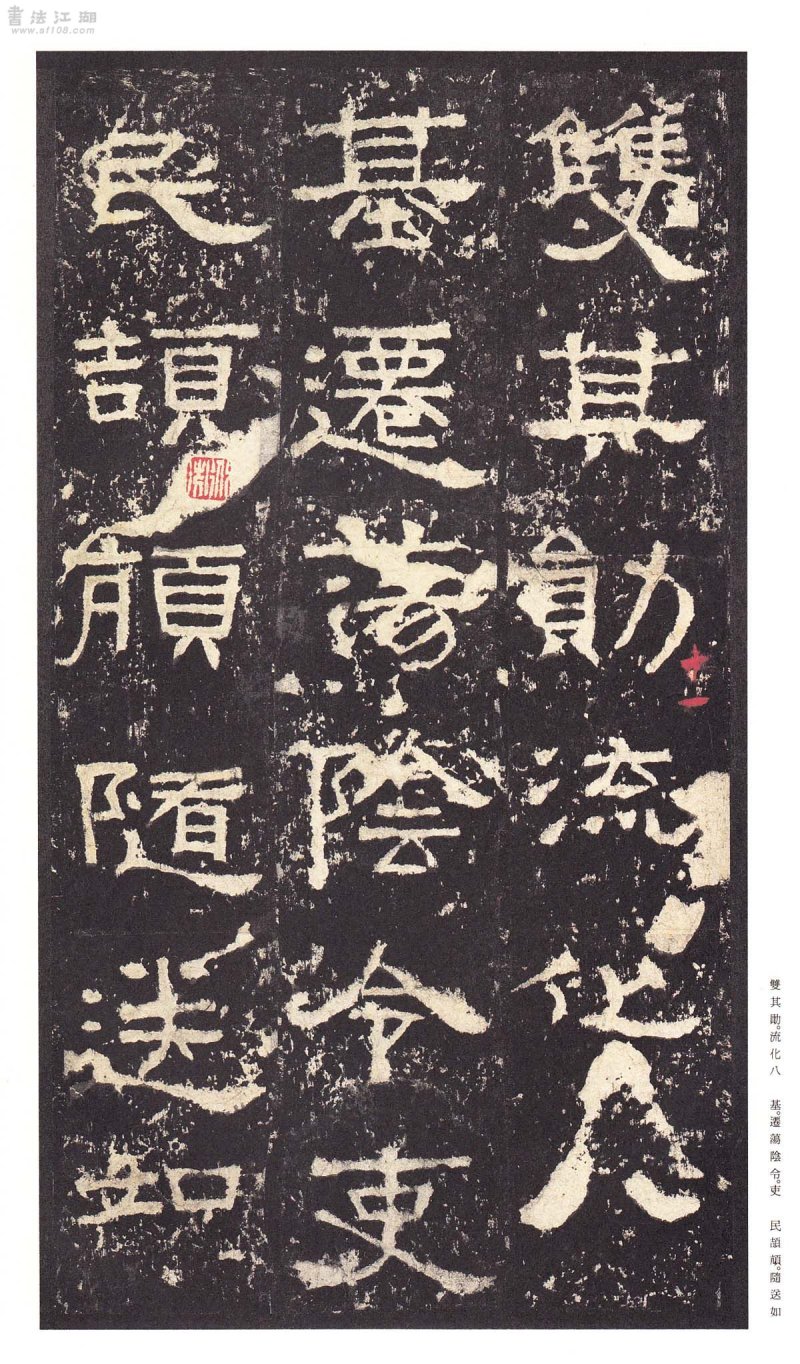 書法江湖
www.af108.com
雙其勛流化八
基遷蕩陰令吏
民頡頏隨送如
雙其勛。流化八　基。遷蕩陰令。吏　民頡頏。隨送如